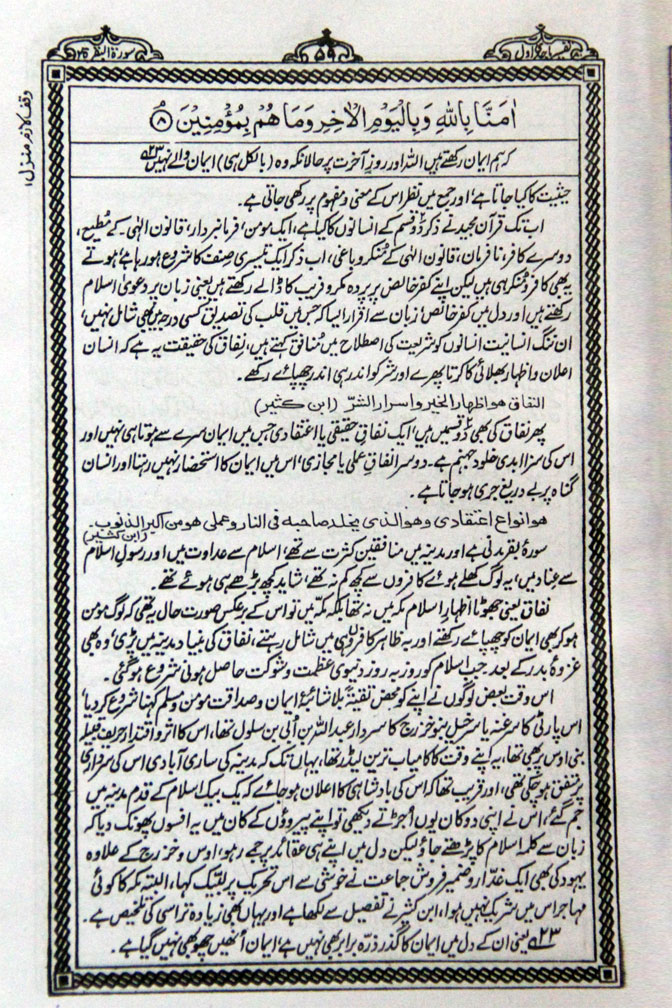 تفسیر ماجدی اول
۵۹
سورة البقرة ۲
وقف لازم منزل ۱
اٰمَنَّا بِاللّٰهِ وَبِالْيَوْمِ الْاٰخِرِ وَمَا هُمْ بِمُؤْمِنِيْنَ ۝۸
کہ ہم ایمان رکھتے ہیں اللہ اور روزِ آخرت پر حالانکہ وہ (بالکل ہی) ایمان والے نہیں ۲۳؎
حیثیت کا کیا جاتا ہے اور جمع میں نظر اس کے معنی و مفہوم پر رکھی جاتی ہے۔
اب تک قرآن مجید نے ذکر دو قسم کے انسانوں کا کیا ہے، ایک مومن، فرمانبردار، قانون الٰہی کے مطیع،
دوسرے کافر، نافرمان، قانون الٰہی کے منکر و باغی، اب ذکر ایک تیسری صنف کا شروع ہو رہا ہے، ہوتے
یہ بھی کافر و منکر ہی ہیں لیکن اپنے کفر خالص پر پردہ مکر و فریب کا ڈالے رکھتے ہیں یعنی زبان پر دعویٰ اسلام
رکھتے ہیں اور دل میں کفر خالص، زبان سے اقرار ایسا کہ جس میں قلب کی تصدیق کسی درجہ میں بھی شامل نہیں،
ان ننگ انسانیت انسانوں کو شریعت کی اصطلاح میں منافق کہتے ہیں، نفاق کی حقیقت یہ ہے کہ انسان
اعلان و اظہار بھلائی کا کرتا پھرے اور شر کو اندر ہی اندر چھپائے رکھے۔
النفاق هو اظهار الخير واسرار الشر (ابن کثیر)
پھر نفاق کی بھی دو قسمیں ہیں، ایک نفاقِ حقیقی یا اعتقادی جس میں ایمان سرے سے ہوتا ہی نہیں اور
اس کی سزا ابدی خلود جہنم ہے۔ دوسرا نفاقِ عملی یا مجازی، اس میں ایمان کا استحضار نہیں رہتا اور انسان
گناہ پر بے دریغ جری ہو جاتا ہے۔
هو انواع اعتقادی وهو الذی يخلد صاحبه فی النار وعملی هو من اکبر الذنوب۔ (ابن کثیر)
سورۂ بقر مدنی ہے اور مدینہ میں منافقین کثرت سے تھے، اسلام سے عداوت میں اور رسولِ اسلام
سے عناد میں، یہ لوگ کھلے ہوئے کافروں سے کچھ کم نہ تھے، شاید کچھ بڑھے ہی ہوئے تھے۔
نفاق یعنی جھوٹا اظہارِ اسلام مکہ میں نہ تھا بلکہ مکہ میں تو اس کے برعکس صورت حال یہ تھی کہ لوگ مومن
ہو کر بھی ایمان کو چھپائے رکھتے اور بہ ظاہر کافروں ہی میں شامل رہتے، نفاق کی بنیاد مدینہ میں پڑی، وہ بھی
غزوۂ بدر کے بعد جب اسلام کو روز بہ روز دنیوی عظمت و شوکت حاصل ہونی شروع ہو گئی۔
اس وقت بعض لوگوں نے اپنے کو محض تقیۃً بلا شائبۂ ایمان و صداقت مومن و مسلم کہنا شروع کر دیا،
اس پارٹی کا سرغنہ یا سرخیل بنو خزرج کا سردار عبداللہ بن اُبی بن سلول تھا، اس کا اثر و اقتدار حریف قبیلہ
بنی اوس پر بھی تھا، یہ اپنے وقت کا کامیاب ترین لیڈر تھا، یہاں تک کہ مدینہ کی ساری آبادی اس کی سرداری
پر متفق ہو چکی تھی، اور قریب تھا کہ اس کی بادشاہی کا اعلان ہو جائے کہ یک بیک اسلام کے قدم مدینہ میں
جم گئے، اس نے اپنی دوکان یوں اُجڑتے دیکھی تو اپنے پیروؤں کے کان میں یہ افسوں پھونک دیا کہ
زبان سے کلمہ اسلام کا پڑھتے جاؤ لیکن دل میں اپنے ہی عقائد پر جمے رہو، اوس و خزرج کے علاوہ
یہود کی بھی ایک غدّار و ضمیر فروش جماعت نے خوشی سے اس تحریک پر لبّیک کہا، البتہ مکہ کا کوئی
مہاجر اس میں شریک نہیں ہوا، ابن کثیر نے تفصیل سے لکھا ہے اور یہاں بھی زیادہ تر اسی کی تلخیص ہے۔
۲۳؎ یعنی ان کے دل میں ایمان کا گذر ذرہ برابر بھی نہیں ہے، ایمان اُنھیں چھو بھی نہیں گیا ہے۔